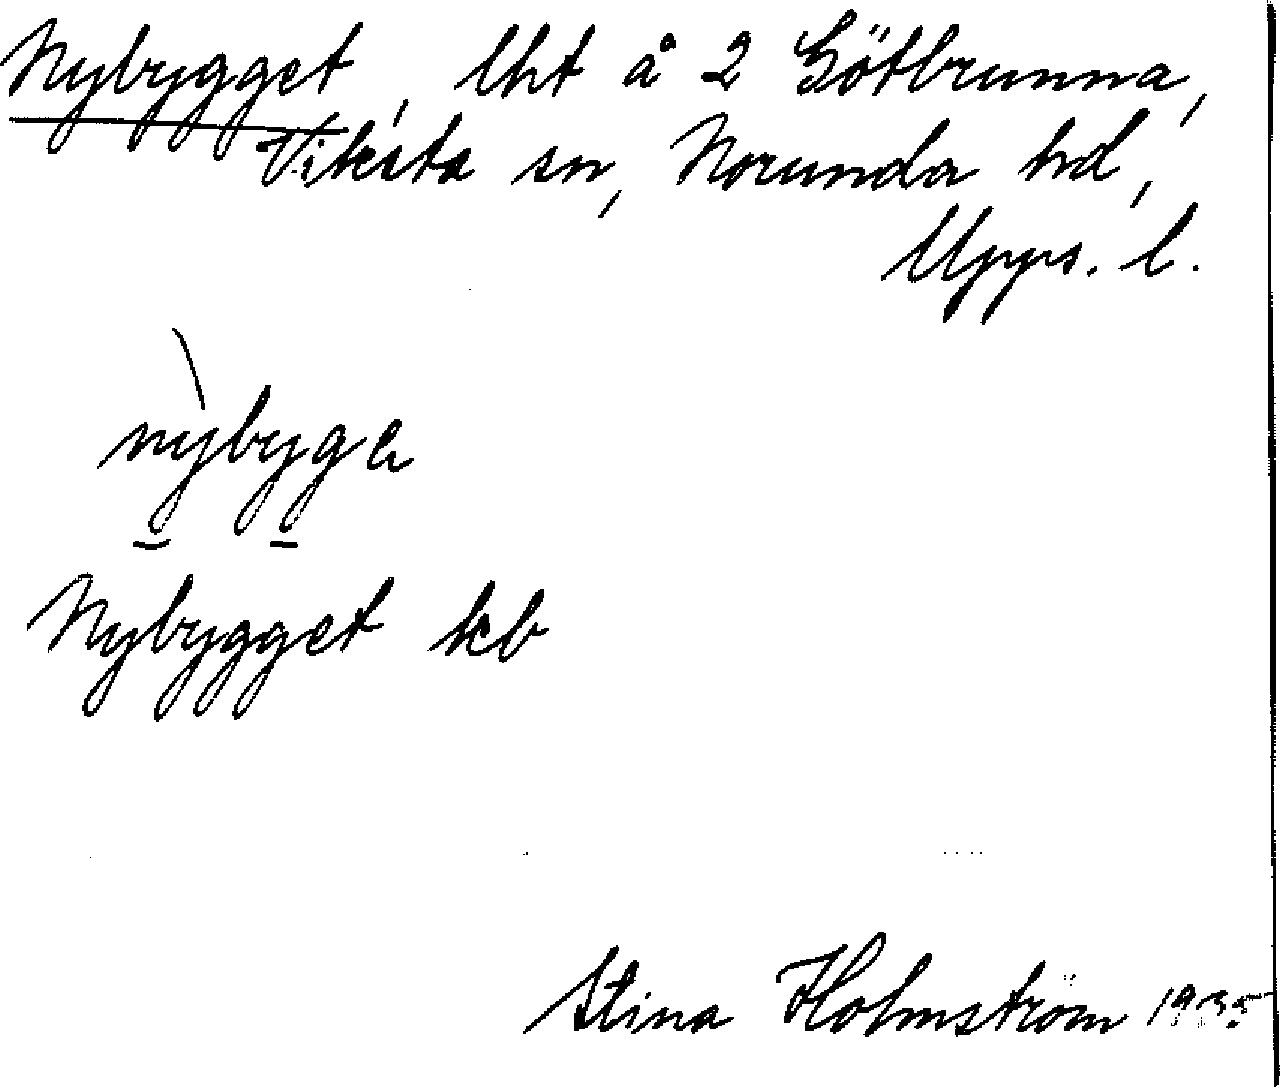 Nybygget, lht å 2 Götbrunna,
Viksta sn, Norunda hd,
Upps. l.
nỳbyge
Nybygget kb
Stina Holmström 1935